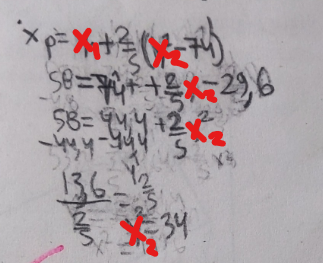 x p = x₁ + 2/5 (x₂ - 74)
58 = 74 + 2/5 x₂ - 29,6
58 = 44,4 + 2/5 x₂
-44,4 -44,4
13,6 / 2/5 = 2/5
x₂ = 34